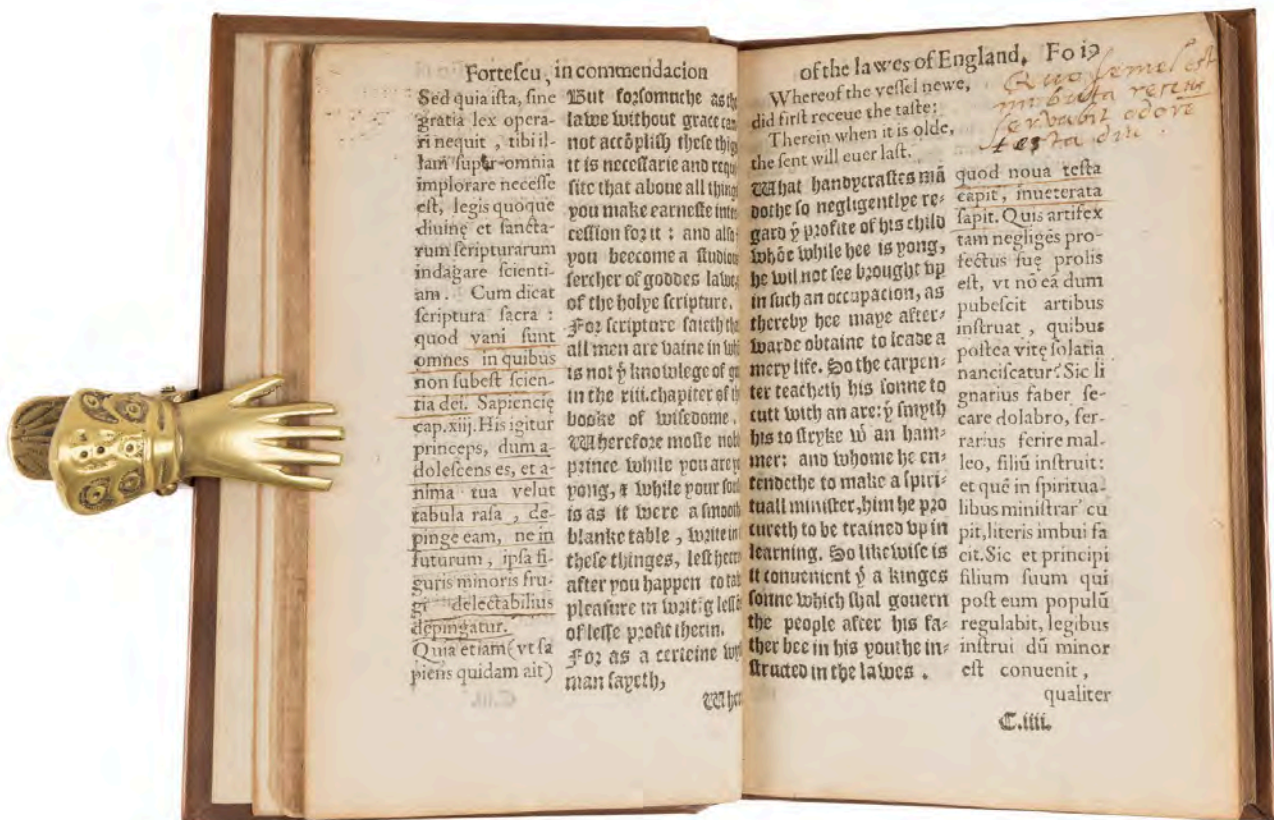 Fortescu, in commendacion
Sed quia ista, sine
gratia lex opera-
ri nequit, tibi il-
lam super omnia
implorare necesse
est, legis quoque
diuinę et sancta-
rum scripturarum
indagare scienti-
am. Cum dicat
scriptura sacra:
quod vani sunt
omnes in quibus
non subest scien-
tia dei. Sapiencię
cap.xiij. His igitur
princeps, dum a-
dolescens es, et a-
nima tua velut
tabula rasa, de-
pinge eam, ne in
futurum, ipsa fi-
guris minoris fru-
gi delectabilius
depingatur.
Quia etiam (vt sa
piens quidam ait)
But forsomuche as the
lawe without grace can
not accōplish these thigs
it is necessarie and requi
site that aboue all things
you make earneste inter
cession for it: and also
you beecome a studious
sercher of goddes lawe,
of the holye scripture.
For scripture saieth that
all men are vaine in
is not ẏ knowlege of
in the xiii.chapiter of the
booke of wisedome.
Wherefore moste noble
prince while you are
yong, & while your soul
is as it were a smooth
blanke table, write in
these thinges, lest
after you happen to
pleasure in writīg
of lesse profit therin.
For as a certeine
man sayeth,
Wher
of the lawes of England. Fo 19
Whereof the vessel newe,
did first receue the taste:
Therein when it is olde,
the sent will euer last.
Quo semel est
imbuta recens
servabit odorē
testa diu.
What handycraftes mā
dothe so negligentlye re-
gard ẏ profite of his child
whōe while hee is yong,
he wil not see brought vp
in such an occupacion, as
thereby hee maye after-
warde obtaine to leade a
mery life. So the carpen-
ter teacheth his sonne to
cutt with an axe: ẏ smyth
his to stryke wͭ an ham-
mer: and whome he en-
tendethe to make a spiri-
tuall minister, him he pro
cureth to be trained vp in
learning. So likewise is
it conuenient ẏ a kinges
sonne which shal gouern
the people after his fa-
ther bee in his youthe in-
structed in the lawes.
quod noua testa
capit, inueterata
sapit. Quis artifex
tam negligēs pro-
fectus suę prolis
est, vt nō eā dum
pubescit artibus
instruat, quibus
postea vitę solatia
nanciscatur? Sic li
gnarius faber se-
care dolabro, fer-
rarius ferire mal-
leo, filiū instruit:
et quē in spiritua-
libus ministrar' cu
pit, literis imbui fa
cit. Sic et principi
filium suum qui
post eum populū
regulabit, legibus
instrui dū minor
est conuenit,
qualiter
C.iiii.